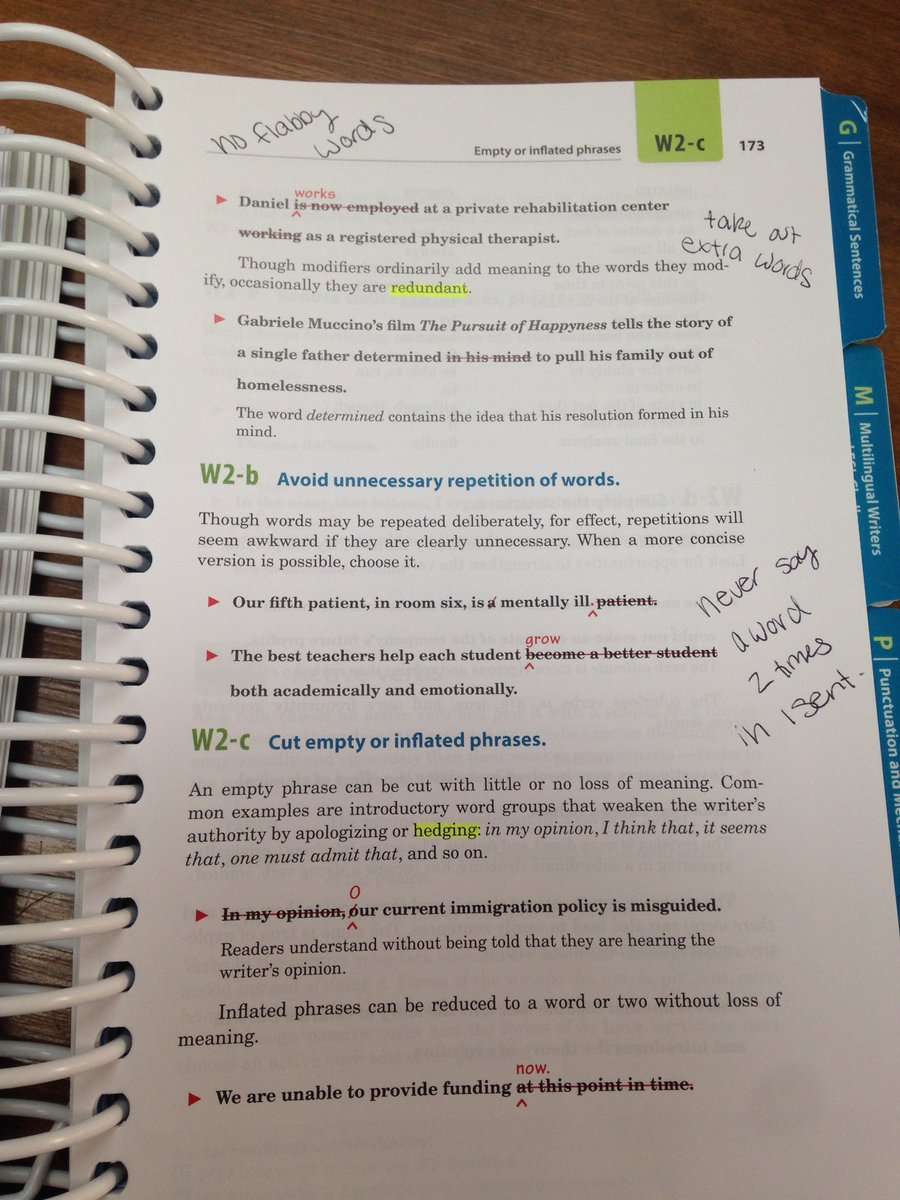 no flabby
words
Empty or inflated phrases W2-c 173
works
Daniel is now employed at a private rehabilitation center
working as a registered physical therapist.
take out
extra words
Though modifiers ordinarily add meaning to the words they mod-
ify, occasionally they are redundant.
Gabriele Muccino's film The Pursuit of Happyness tells the story of
a single father determined in his mind to pull his family out of
homelessness.
The word determined contains the idea that his resolution formed in his
mind.
W2-b Avoid unnecessary repetition of words.
Though words may be repeated deliberately, for effect, repetitions will
seem awkward if they are clearly unnecessary. When a more concise
version is possible, choose it.
Our fifth patient, in room six, is a mentally ill. patient.
grow
The best teachers help each student become a better student
both academically and emotionally.
never say
a word
2 times
in 1 sent.
W2-c Cut empty or inflated phrases.
An empty phrase can be cut with little or no loss of meaning. Com-
mon examples are introductory word groups that weaken the writer's
authority by apologizing or hedging: in my opinion, I think that, it seems
that, one must admit that, and so on.
O
In my opinion, our current immigration policy is misguided.
Readers understand without being told that they are hearing the
writer's opinion.
Inflated phrases can be reduced to a word or two without loss of
meaning.
now.
We are unable to provide funding at this point in time.
G | Grammatical Sentences
M | Multilingual Writers
P | Punctuation and